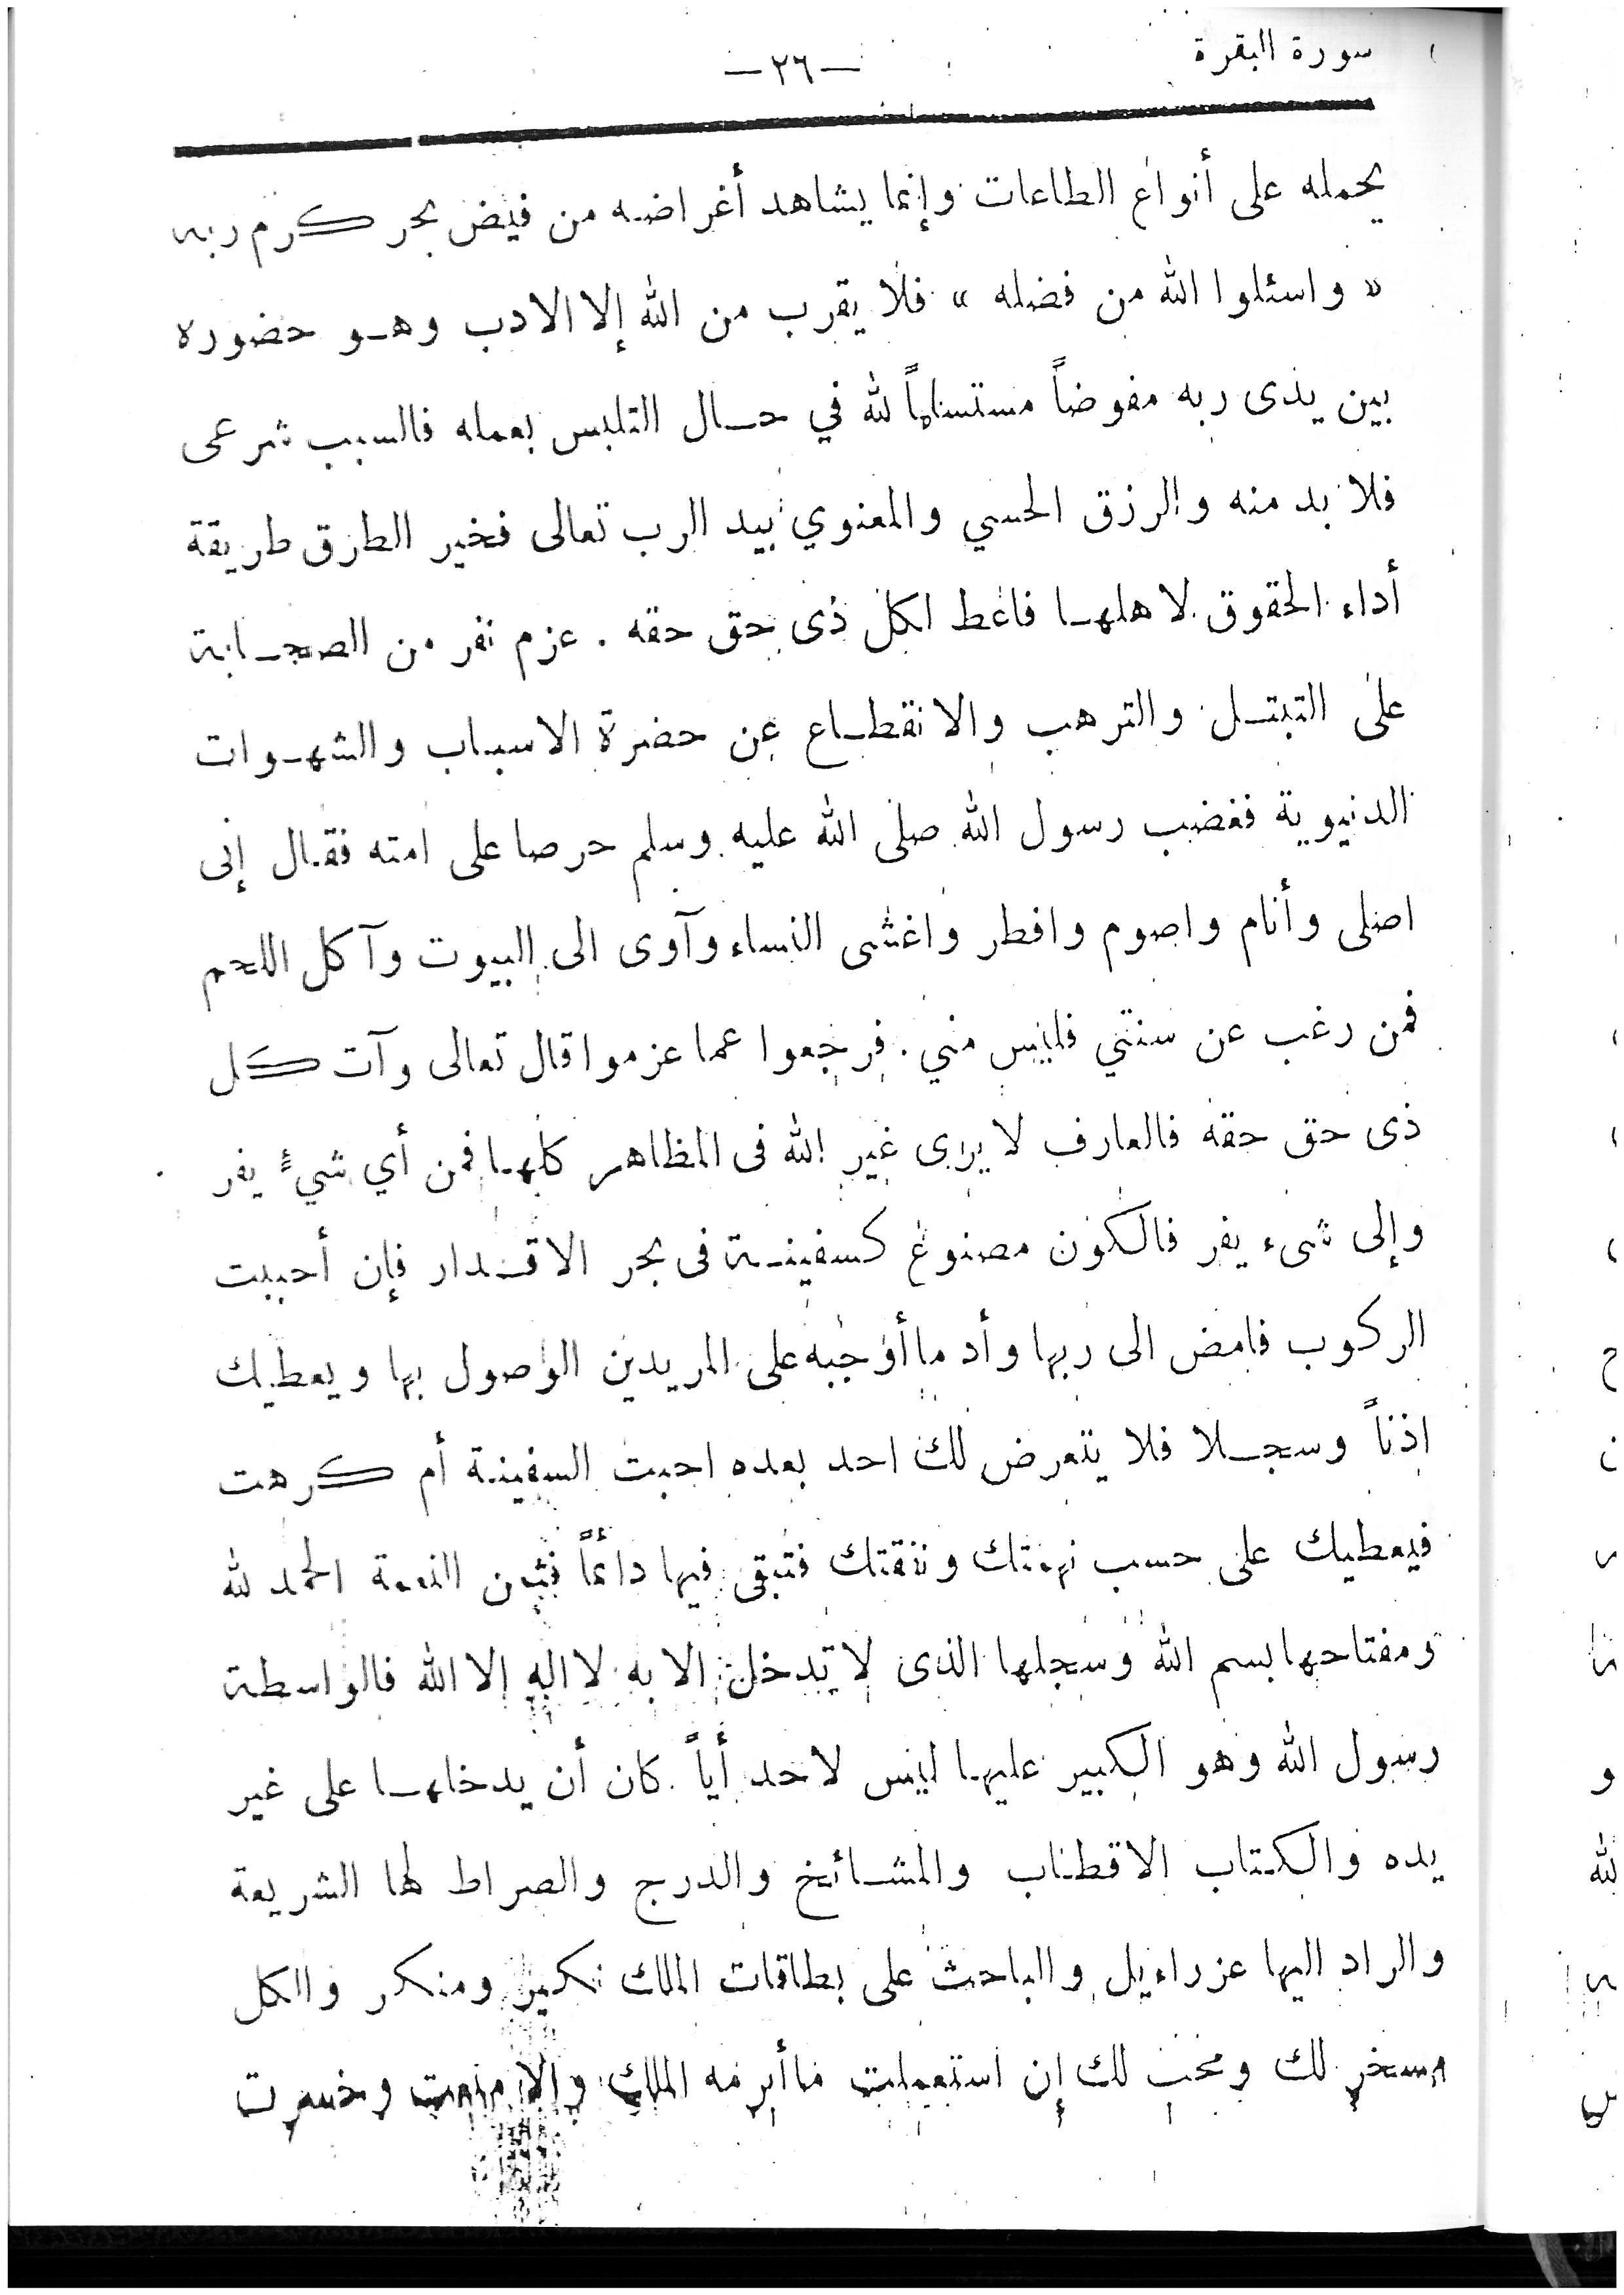 سورة البقرة
—٢٦—
يحمله على أنواع الطاعات وإنما يشاهد أغراضه من فيض بحر كرم ربه
« واسئلوا الله من فضله » فلا يقرب من الله إلا الادب وهو حضوره
بين يدى ربه مفوضاً مستسلماً لله في حال التلبس بعمله فالسبب شرعى
فلا بد منه والرزق الحسي والمعنوي بيد الرب تعالى فخير الطرق طريقة
أداء الحقوق لاهلها فاعط لكل ذى حق حقه . عزم نفر من الصحابة
على التبتل والترهب والانقطاع عن حضرة الاسباب والشهوات
الدنيوية فغضب رسول الله صلى الله عليه وسلم حرصا على امته فقال إنى
اصلى وأنام واصوم وافطر واغشى النساء وآوى الى البيوت وآكل اللحم
فمن رغب عن سنتي فليس مني . فرجعوا عما عزموا قال تعالى وآت كل
ذى حق حقه فالعارف لا يرى غير الله فى المظاهر كلها فمن أي شيء يفر
وإلى شىء يفر فالكون مصنوع كسفينة فى بحر الاقدار فإن أحببت
الركوب فامض الى ربها وأد ما أوجبه على المريدين الوصول بها ويعطيك
اذناً وسجلا فلا يتعرض لك احد بعده احبت السفينة أم كرهت
فيعطيك على حسب نهمتك ونفقتك فتبقى فيها دائماً فثمن النعمة الحمد لله
ومفتاحها بسم الله وسجلها الذى لا تدخل الا به لا اله إلا الله فالواسطة
رسول الله وهو الكبير عليها ليس لاحد أياً كان أن يدخلها على غير
يده والكتاب الاقطاب والمشائخ والدرج والصراط لها الشريعة
والراد اليها عزراءيل والباحث على بطاقات الملك نكير ومنكر والكل
مسخر لك ومحب لك إن استعملت ما أبرمه الملك والا منعت وخسرت